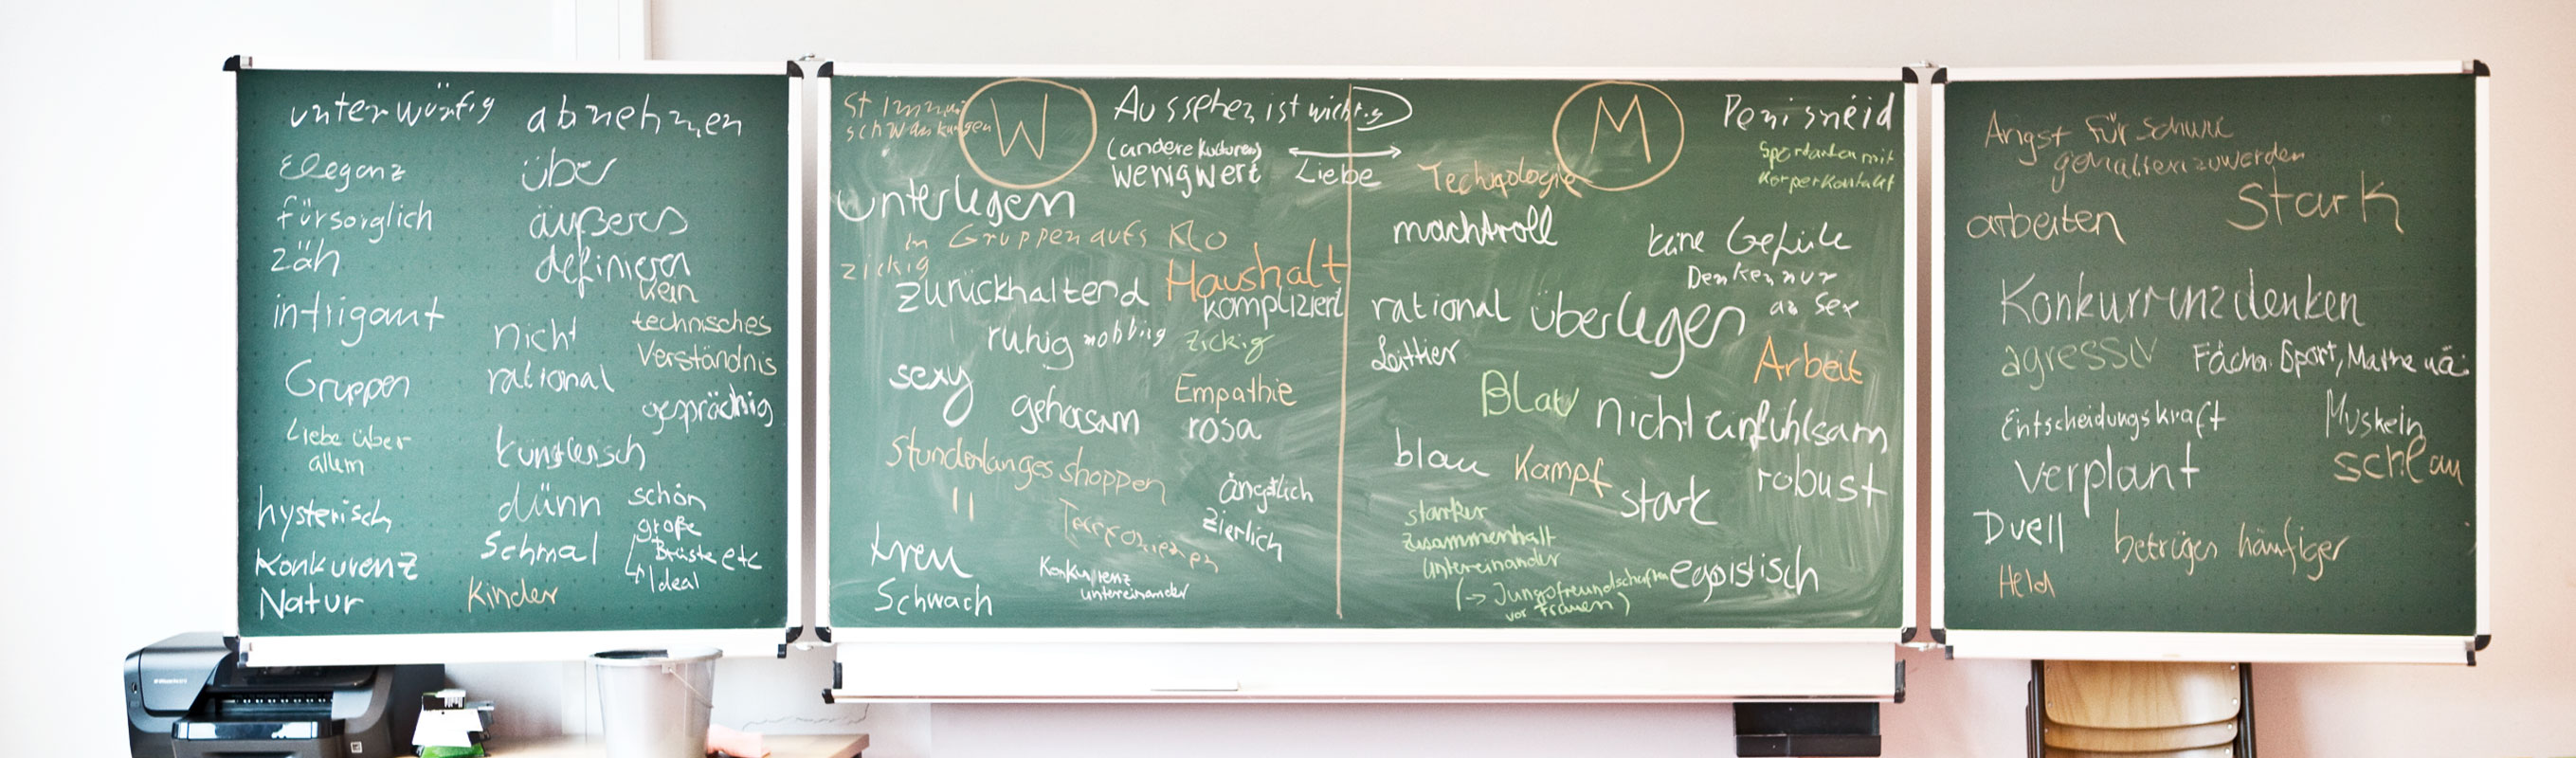 unterwürfig
Eleganz
fürsorglich
zäh
intrigant
Gruppen
Liebe über
allem
hysterisch
Konkurenz
Natur
abnehmen
über
äußeres
definieren
kein
technisches
Verständnis
nicht
rational
gesprächig
künstlerisch
dünn
schmal
Kinder
schön
große
Brüste etc
Ideal
schwankungen
W
Aussehen ist wichtig
(andere Kulturen)
wenig wert
Liebe
unterlegen
in Gruppen aufs Klo
zickig
zurückhaltend
Haushalt
kompliziert
ruhig
mobbing
zickig
sexy
Empathie
gehorsam
rosa
Stundenlanges shoppen
"
ängstlich
zierlich
treu
Schwach
Konkurrenz
untereinander
M
Penisneid
Technologie
Sportarten mit
Körperkontakt
machtvoll
keine Gefühle
Denken nur
an Sex
rational
überlegen
Leittier
Arbeit
Blau
nicht einfühlsam
blau
Kampf
stark
robust
starker
zusammenhalt
untereinander
(→ Jungsfreundschaften
vor Frauen)
egoistisch
Angst für schwul
gehalten zu werden
arbeiten
Stark
Konkurrenzdenken
agressiv
Fächer: Sport, Mathe
Entscheidungskraft
Muskeln
verplant
schlau
Duell
betrügen häufiger
Held